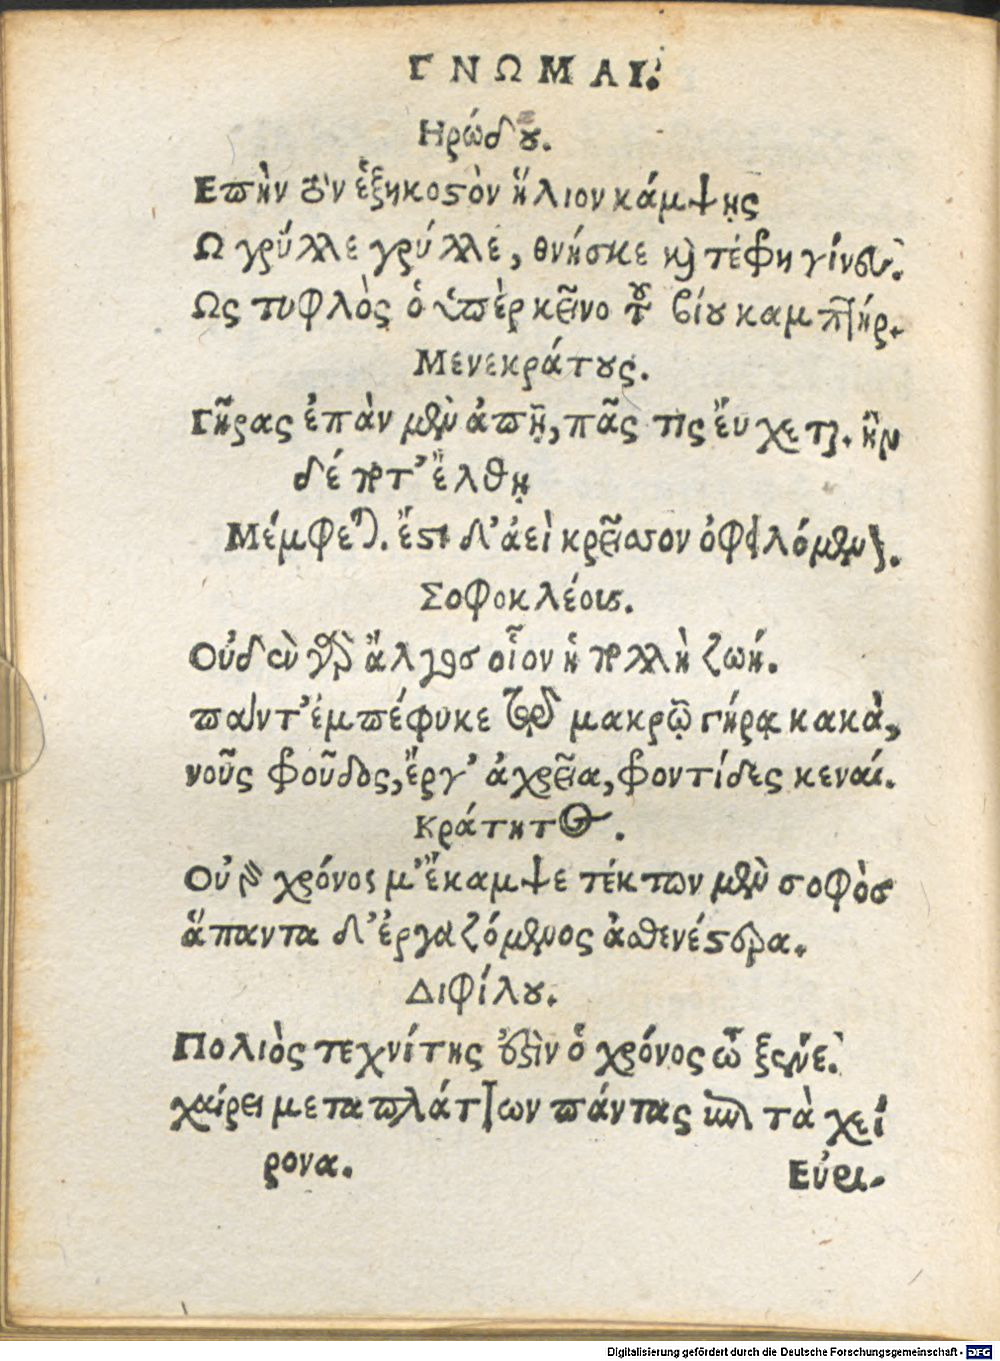 ΓΝΩΜΑΙ.
Ηρώδου.
Επὴν τὸν ἑξηκοστὸν ἥλιον κάμψῃς
Ω γρύλλε γρύλλε, θνήσκε καὶ τέφρη γίνευ.
Ως τυφλὸς ὁ ὑπὲρ κεῖνο τοῦ βίου καμπτήρ.
Μενεκράτους.
Γῆρας ἐπὰν μὲν ἀπῇ, πᾶς τις εὔχεται. ἢν
δέ ποτ' ἔλθῃ
Μέμφεται. ἔστι δ' ἀεὶ κρεῖσσον ὀφειλόμενον.
Σοφοκλέους.
Οὐδὲν γὰρ ἄλγος οἷον ἡ πολλὴ ζωή.
παντ' ἐμπέφυκε τῷ μακρῷ γήρᾳ κακὰ,
νοῦς φροῦδος, ἔργ' ἀχρεῖα, φροντίδες κεναί.
Κράτητος.
Οὑ γὰρ χρόνος μ' ἔκαμψε τέκτων μὲν σοφὸσ
ἅπαντα δ' ἐργαζόμενος ἀσθενέστερα.
Διφίλου.
Πολιὸς τεχνίτης ἐστὶν ὁ χρόνος ὦ ξένε.
χαίρει μεταπλάττων πάντας ἐπὶ τὰ χεί
ρονα.
Εὐρι-
Digitalisierung gefördert durch die Deutsche Forschungsgemeinschaft - DFG